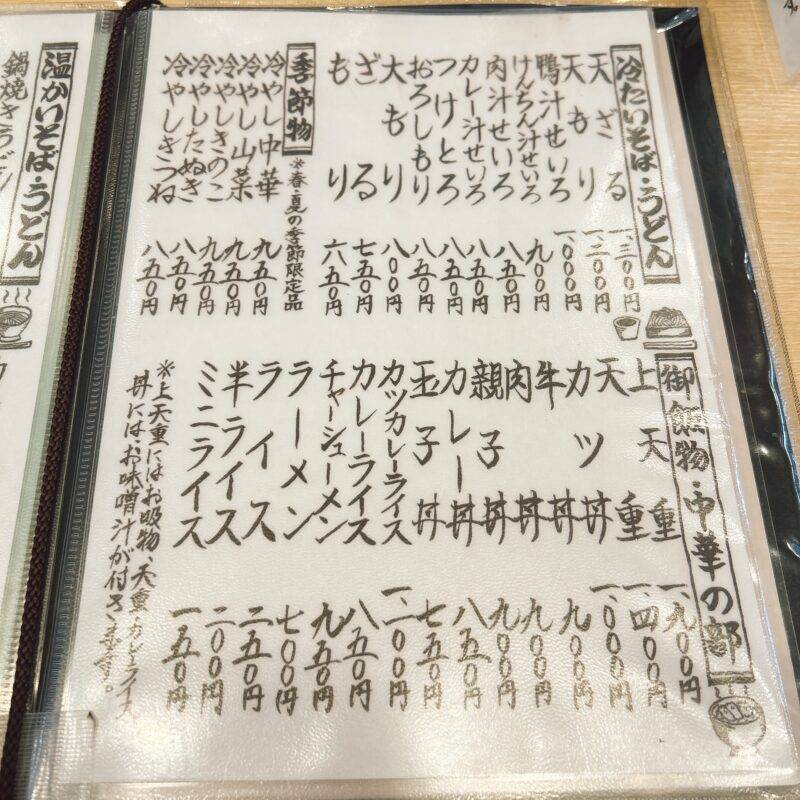 冷たいそば・うどん
天ざる 一、三〇〇円
天もり 一、二〇〇円
鴨汁せいろ 一、〇〇〇円
けんちん汁せいろ 九〇〇円
肉汁せいろ 八五〇円
カレー汁せいろ 八五〇円
つけとろ 八五〇円
おろしもり 八五〇円
大もり 八〇〇円
ざる 七五〇円
もり 六五〇円
季節物 ※春・夏の季節限定品
冷やし中華 九五〇円
冷やし山菜 九五〇円
冷やしきのこ 九五〇円
冷やしたぬき 八五〇円
冷やしきつね 八五〇円
御飯物・中華の部
上天重 一、九〇〇円
天重 一、四〇〇円
カツ丼 一、〇〇〇円
牛丼 九〇〇円
肉丼 九〇〇円
親子丼 九〇〇円
カレー丼 八五〇円
玉子丼 七五〇円
カツカレーライス 一、一〇〇円
カレーライス 八五〇円
チャーシューメン 九五〇円
ラーメン 七〇〇円
ライス 二五〇円
半ライス 二〇〇円
ミニライス 一五〇円
※上天重にはお吸物、天重・カレーライス
丼にはお味噌汁が付きます。
温かいそば・うどん
鍋焼きうどん